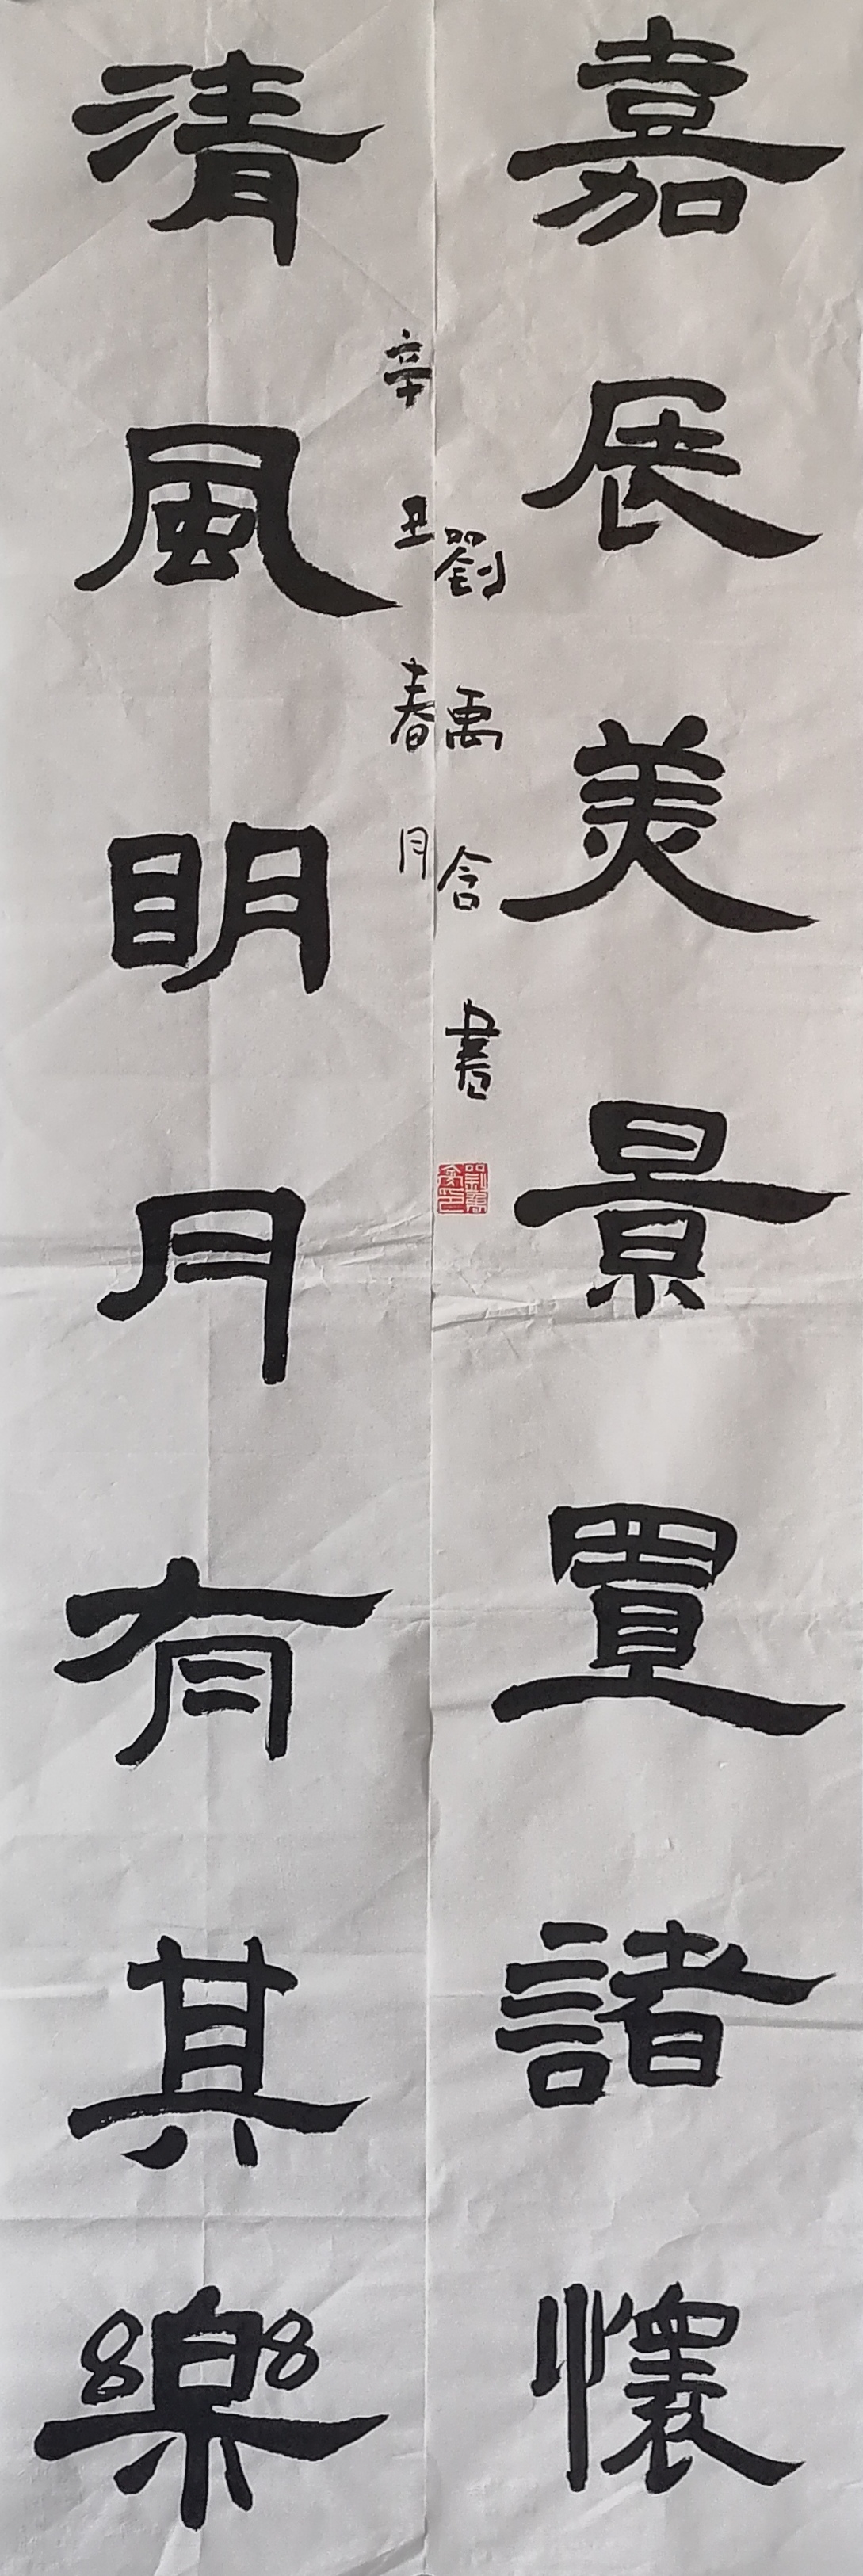 嘉辰美景置諸懷
劉禹含書
辛丑春月
清風明月有其樂